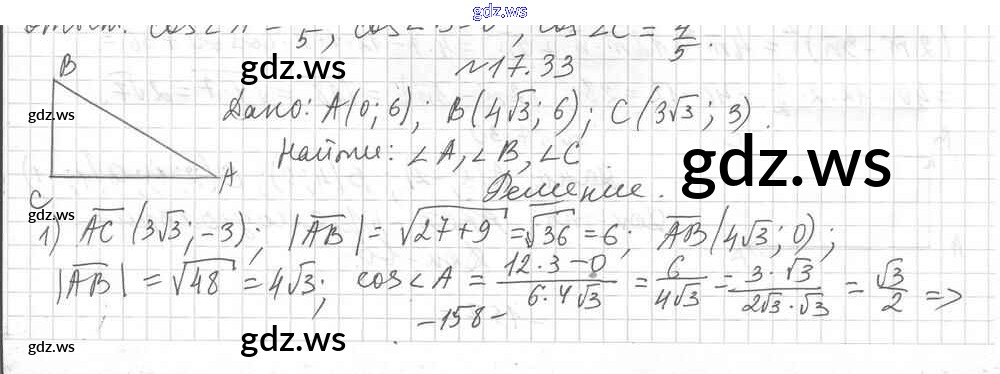 gdz.ws
Ответ: cos∠A = /5, cos∠B=0, cos∠C = 4/5
№17.33
B
gdz.ws
gdz.ws
Дано: A(0; 6); B(4√3; 6); C(3√3; 3).
Найти: ∠A, ∠B, ∠C
gdz.ws
C
A
Решение.
gdz.ws
gdz.ws
1) AC (3√3; -3); |AB| = √27+9 = √36 = 6; AB(4√3; 0);
|AB| = √48 = 4√3; cos∠A = 12·3-0/6·4√3 = 6/4√3 = 3·√3/2√3·√3 = √3/2 =>
-158-
gdz.ws
gdz.ws
gdz.ws